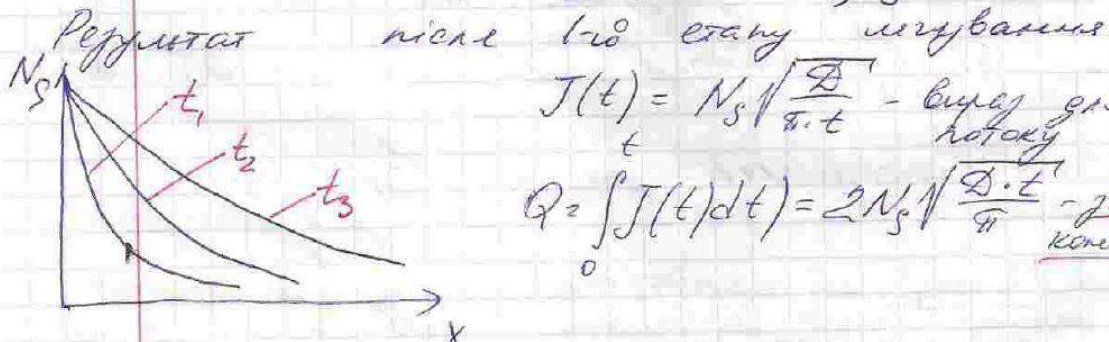 Результат після 1-го етапу легування
N_S
t_1
t_2
t_3
x
J(t) = N_S √(D/(π·t)) - вираз для
потоку
Q = ∫_0^t J(t)dt = 2N_S √(D·t/π)